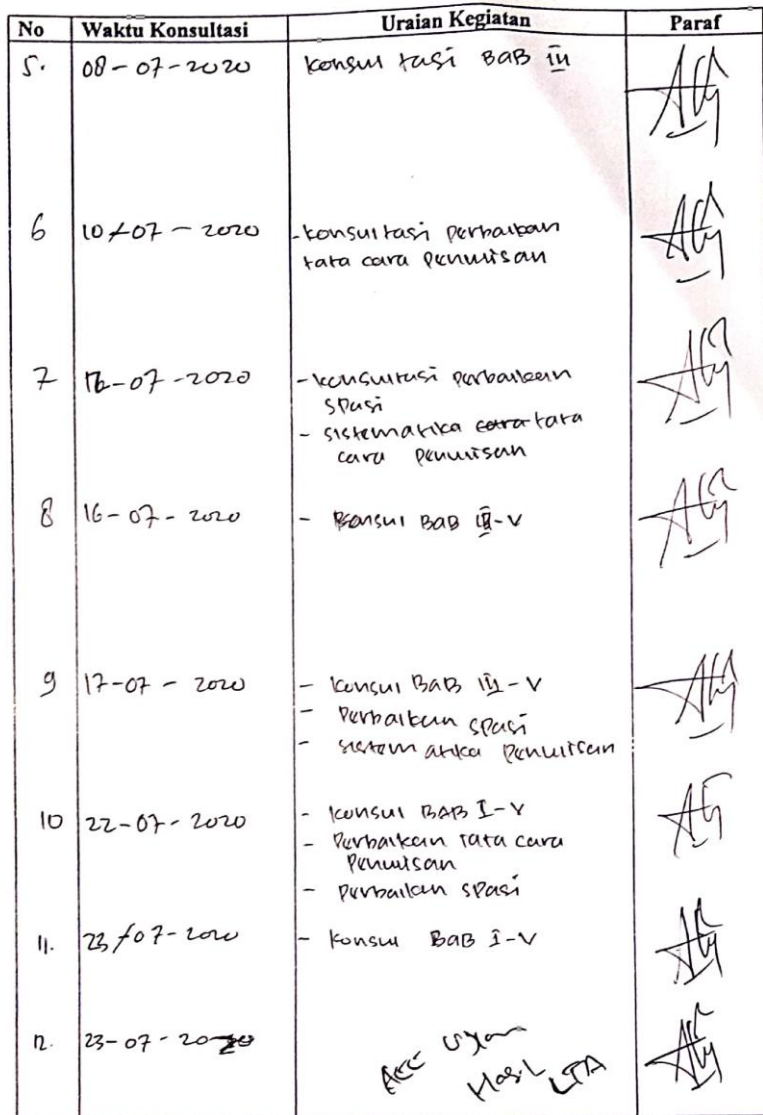 No Waktu Konsultasi Uraian Kegiatan Paraf
5. 08-07-2020 konsultasi BAB III
6 10/07-2020 - konsultasi perbaikan
tata cara penulisan
7 -07-2020 - konsultasi perbaikan
spasi
- sistematika tata
cara penulisan
8 16-07-2020 - konsul BAB III-V
9 17-07-2020 - konsul BAB III-V
- Perbaikan spasi
- sistematika penulisan
10 22-07-2020 - konsul BAB I-V
- Perbaikan tata cara
penulisan
- perbaikan spasi
11. 23/07-2020 - konsul BAB I-V
12. 23-07-2020 Acc Ujian
Hasil LTA